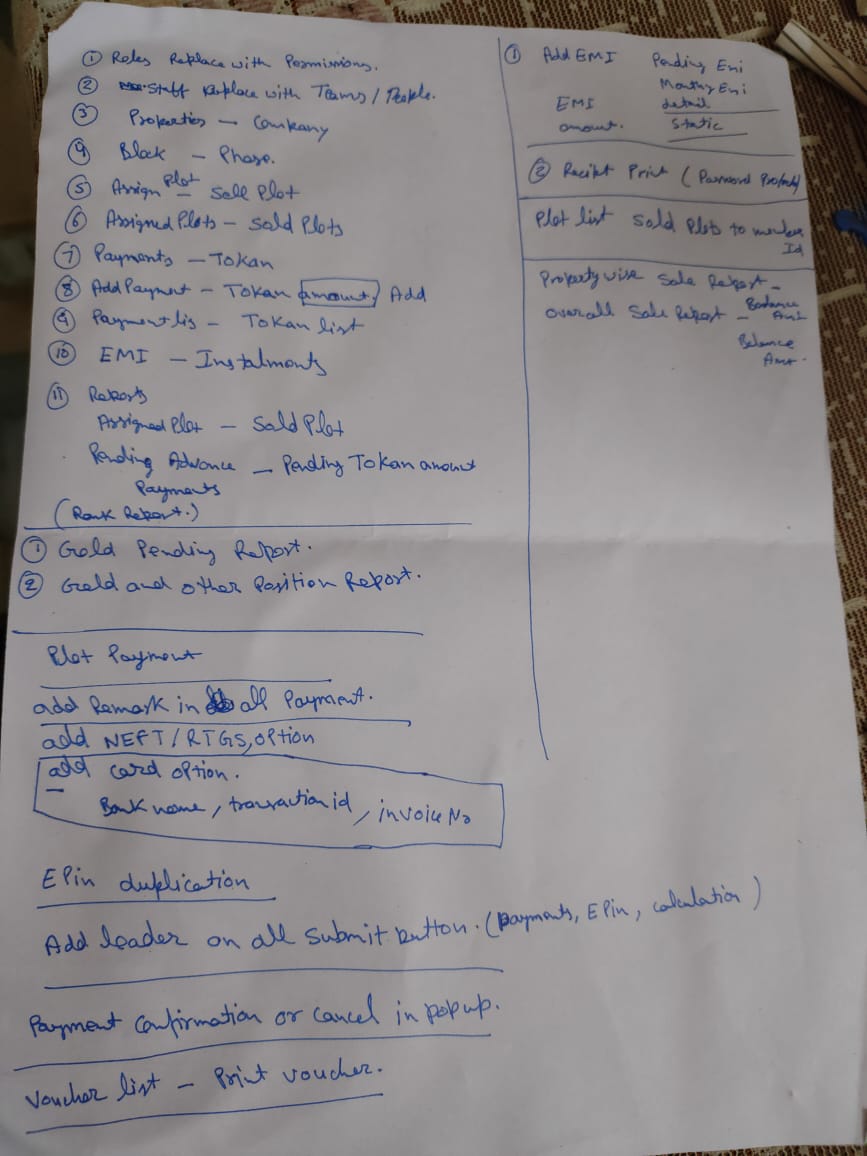 ① Roles Replace with Permissions.
② Staff Replace with Teams / People.
③ Properties – Company
④ Block – Phase.
⑤ Assign Plot – Sell Plot
⑥ Assigned Plots – Sold Plots
⑦ Payments – Tokan
⑧ Add Payment – Tokan amount Add
⑨ Payment lis – Tokan list
⑩ EMI – Instalments
⑪ Reports
Assigned Plot – Sold Plot
Pending Advance – Pending Tokan amount
Payments
(Rank Report.)
① Gold Pending Report.
② Gold and other Position Report.
Plot Payment
add Remark in all Payment.
add NEFT/RTGS, option
add card option.
Bank name, transaction id, invoice No
EPin duplication
Add loader on all submit button. (payments, EPin, calculation)
Payment Confirmation or cancel in popup.
Voucher list – Print voucher.
① Add EMI Pending Emi
Monthy Emi
EMI detail
amount. Static
② Recipt Print (Password Protected)
Plot list Sold Plots to member
Id
Property wise Sale Report –
overall Sale Report – Balance
Amt
Balance
Amt.